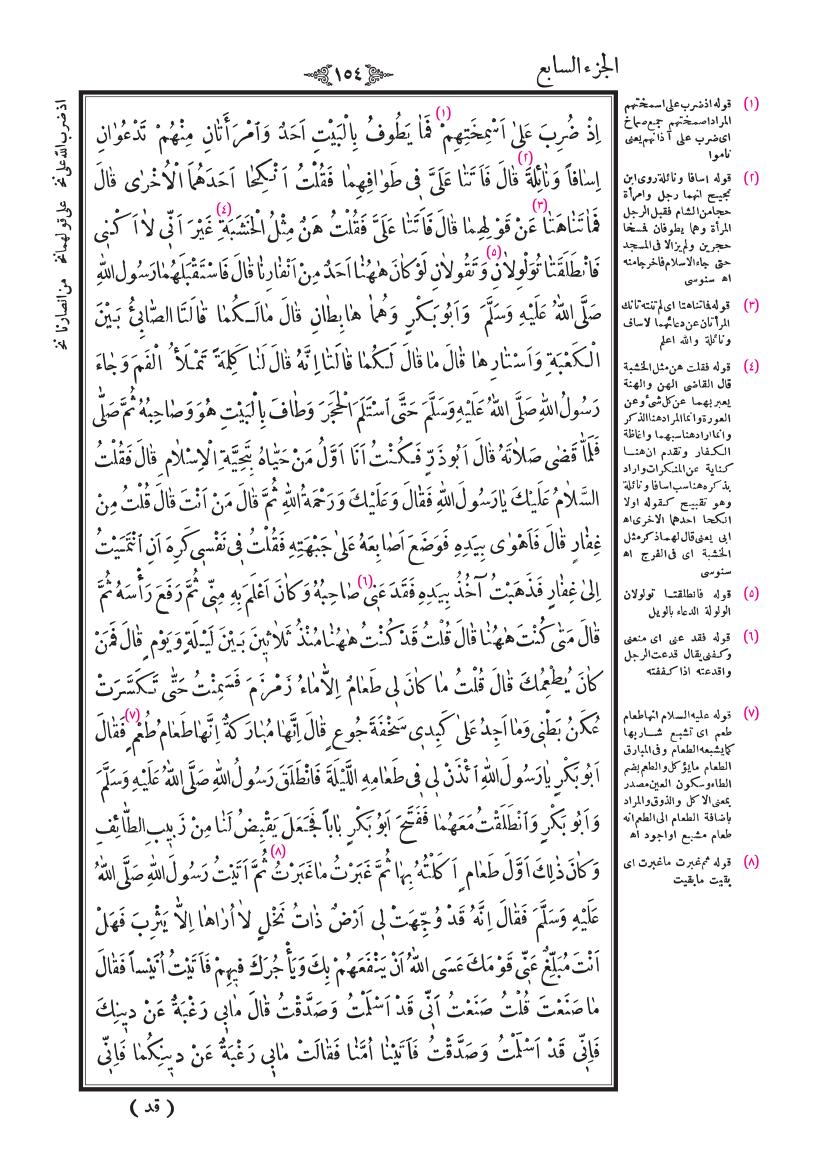 الجزء السابع
١٥٤
اِذْ ضُرِبَ عَلٰى اَسْمِخَتِهِمْ (١) فَمٰا يَطُوفُ بِالْبَيْتِ اَحَدٌ وَاَمْرَأَتَانِ مِنْهُمْ تَدْعُوَانِ
اِسَافاً وَنَائِلَةَ (٢) قَالَ فَاَتَتَا عَلَىَّ فِى طَوَافِهِمَا فَقُلْتُ اَنْكِحَا اَحَدَهُمَا الْاُخْرٰى قَالَ
فَمَا تَنَاهَتَا (٣) عَنْ قَوْلِهِمَا قَالَ فَاَتَتَا عَلَىَّ فَقُلْتُ هَنٌ مِثْلُ الْخَشَبَةِ (٤) غَيْرَ اَنِّى لاَ اَكْنِى
فَانْطَلَقَتَا تُوَلْوِلاَنِ (٥) وَتَقُولاَنِ لَوْ كَانَ هٰهُنَا اَحَدٌ مِنْ اَنْفَارِنَا قَالَ فَاسْتَقْبَلَهُمَا رَسُولُ اللهِ
صَلَّى اللهُ عَلَيْهِ وَسَلَّمَ وَاَبُو بَكْرٍ وَهُمَا هَابِطَانِ قَالَ مَالَكُمَا قَالَتَا الصَّابِئُ بَيْنَ
الْكَعْبَةِ وَاَسْتَارِهَا قَالَ مَا قَالَ لَكُمَا قَالَتَا اِنَّهُ قَالَ لَنَا كَلِمَةً تَمْلَأُ الْفَمَ وَجَاءَ
رَسُولُ اللهِ صَلَّى اللهُ عَلَيْهِ وَسَلَّمَ حَتَّى اسْتَلَمَ الْحَجَرَ وَطَافَ بِالْبَيْتِ هُوَ وَصَاحِبُهُ ثُمَّ صَلّٰى
فَلَمَّا قَضٰى صَلاَتَهُ قَالَ اَبُو ذَرٍّ فَكُنْتُ اَنَا اَوَّلُ مَنْ حَيَّاهُ بِتَحِيَّةِ الْاِسْلاَمِ قَالَ فَقُلْتُ
السَّلاَمُ عَلَيْكَ يَا رَسُولَ اللهِ فَقَالَ وَعَلَيْكَ وَرَحْمَةُ اللهِ ثُمَّ قَالَ مَنْ اَنْتَ قَالَ قُلْتُ مِنْ
غِفَارٍ قَالَ فَاَهْوٰى بِيَدِهِ فَوَضَعَ اَصَابِعَهُ عَلٰى جَبْهَتِهِ فَقُلْتُ فِى نَفْسِى كَرِهَ اَنِ انْتَمَيْتُ
اِلٰى غِفَارٍ فَذَهَبْتُ آخُذُ بِيَدِهِ فَقَدَعَنِى (٦) صَاحِبُهُ وَكَانَ اَعْلَمَ بِهِ مِنِّى ثُمَّ رَفَعَ رَأْسَهُ ثُمَّ
قَالَ مَتٰى كُنْتَ هٰهُنَا قَالَ قُلْتُ قَدْ كُنْتُ هٰهُنَا مُنْذُ ثَلاَثِينَ بَيْنَ لَيْلَةٍ وَيَوْمٍ قَالَ فَمَنْ
كَانَ يُطْعِمُكَ قَالَ قُلْتُ مَا كَانَ لِى طَعَامٌ اِلاَّ مَاءُ زَمْزَمَ فَسَمِنْتُ حَتّٰى تَكَسَّرَتْ
عُكَنُ بَطْنِى وَمَا اَجِدُ عَلٰى كَبِدِى سَخْفَةَ جُوعٍ قَالَ اِنَّهَا مُبَارَكَةٌ اِنَّهَا طَعَامُ طُعْمٍ (٧) فَقَالَ
اَبُو بَكْرٍ يَا رَسُولَ اللهِ ائْذَنْ لِى فِى طَعَامِهِ اللَّيْلَةَ فَانْطَلَقَ رَسُولُ اللهِ صَلَّى اللهُ عَلَيْهِ وَسَلَّمَ
وَاَبُو بَكْرٍ وَانْطَلَقْتُ مَعَهُمَا فَفَتَحَ اَبُو بَكْرٍ بَاباً فَجَعَلَ يَقْبِضُ لَنَا مِنْ زَبِيبِ الطَّائِفِ
وَكَانَ ذٰلِكَ اَوَّلَ طَعَامٍ اَكَلْتُهُ بِهَا ثُمَّ غَبَرْتُ مَا غَبَرْتُ (٨) ثُمَّ اَتَيْتُ رَسُولَ اللهِ صَلَّى اللهُ
عَلَيْهِ وَسَلَّمَ فَقَالَ اِنَّهُ قَدْ وُجِّهَتْ لِى اَرْضٌ ذَاتُ نَخْلٍ لاَ اُرَاهَا اِلاَّ يَثْرِبَ فَهَلْ
اَنْتَ مُبَلِّغٌ عَنِّى قَوْمَكَ عَسَى اللهُ اَنْ يَنْفَعَهُمْ بِكَ وَيَأْجُرَكَ فِيهِمْ فَاَتَيْتُ اُنَيْساً فَقَالَ
مَا صَنَعْتَ قُلْتُ صَنَعْتُ اَنِّى قَدْ اَسْلَمْتُ وَصَدَّقْتُ قَالَ مَا بِى رَغْبَةٌ عَنْ دِينِكَ
فَاِنِّى قَدْ اَسْلَمْتُ وَصَدَّقْتُ فَاَتَيْنَا اُمَّنَا فَقَالَتْ مَا بِى رَغْبَةٌ عَنْ دِينِكُمَا فَاِنِّى
( قد )
(١) قوله اذ ضرب على اسمختهم
المراد اصمختهم جمع سماخ
اى ضرب على آذانهم يعنى
ناموا
(٢) قوله اسافا ونائلة روى ابن
نجيح انهما رجل وامرأة
حجا من الشام فقبل الرجل
المرأة وهما يطوفان فمسخا
حجرين ولم يزالا فى المسجد
حتى جاء الاسلام فاخرجا منه
اه سنوسى
(٣) قوله فما تناهتا اى لم تنته تانك
المرأتان عن دعائهما لاساف
ونائلة والله اعلم
(٤) قوله فقلت هن مثل الخشبة
قال القاضى الهن والهنة
يعبر بهما عن كل شئ وعن
العورة وانما المراد هنا الذكر
وانما اراد هنا سبهما واغاظة
الكفار وتقدم ان هنا
كناية عن المنكرات واراد
بذكره هنا سب اسافا ونائلة
وهو تقبيح كقوله اولا
انكحا احدهما الاخرى اه
ابى يعنى قال لهما ذكر مثل
الخشبة اى فى الفرج اه
سنوسى
(٥) قوله فانطلقتا تولولان
الولولة الدعاء بالويل
(٦) قوله فقد عنى اى منعنى
وكفنى يقال قدعت الرجل
واقدعته اذا كففته
(٧) قوله عليه السلام انها طعام
طعم اى تشبع شاربها
كما يشبعه الطعام وفى المبارق
الطعام ما يؤكل والطعم بضم
الطاء وسكون العين مصدر
بمعنى الاكل والذوق والمراد
باضافة الطعام الى الطعم انه
طعام مشبع او اجود اه
(٨) قوله ثم غبرت ما غبرت اى
بقيت ما بقيت
اذ ضرب الله على نخ
على قولهما نخ
من انصارنا نخ